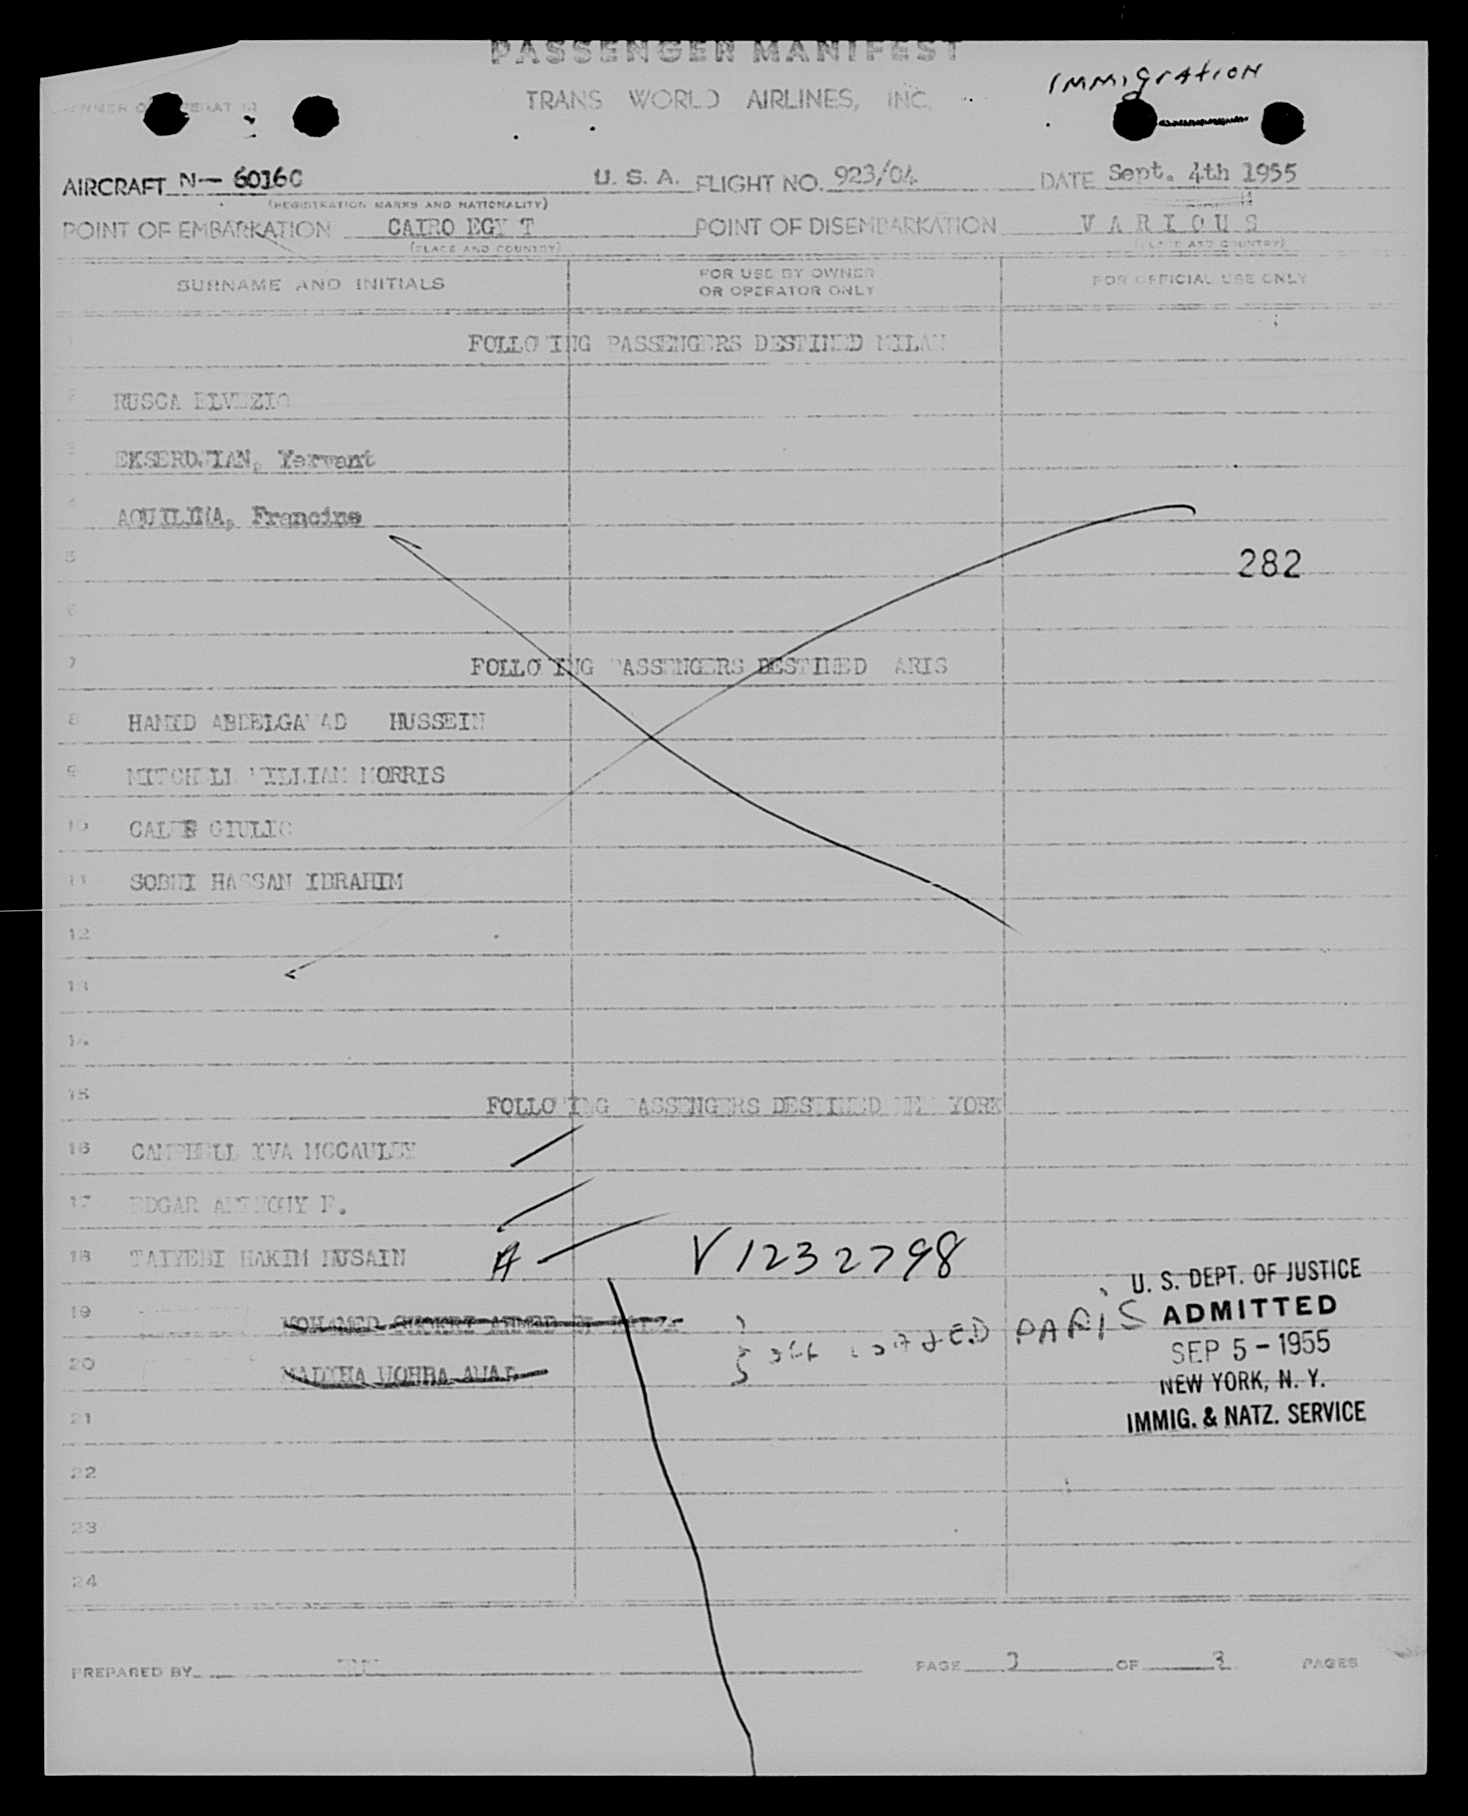 PASSENGER MANIFEST
Immigration
TRANS WORLD AIRLINES, INC.
AIRCRAFT N- 6016C U. S. A. FLIGHT NO. 923/04 DATE Sept. 4th 1955
(REGISTRATION MARKS AND NATIONALITY)
POINT OF EMBARKATION CAIRO EGY T POINT OF DISEMBARKATION VARIOUS
(PLACE AND COUNTRY) (PLACE AND COUNTRY)
SURNAME AND INITIALS FOR USE BY OWNER OR OPERATOR ONLY FOR OFFICIAL USE ONLY
FOLLOWING PASSENGERS DESTINED MILAN
2 RUSCA
3 EKSERDJIAN, Yervant
4 AQUILINA, Francine
5
282
6
7 FOLLOWING PASSENGERS DESTINED PARIS
8 HAMID ABDELGAWAD HUSSEIN
9 MITCHELL WILLIAM MORRIS
10 GIULIO
11 SOBHI HASSAN IBRAHIM
12
13
14
15 FOLLOWING PASSENGERS DESTINED NEW YORK
16 CAMPBELL IVA MCCAULEY
17 EDGAR ANTHONY F.
18 TAIYEBI HAKIM HUSAIN A - V1232798
19 MOHAMED SHOUKRI AHMED
20 off loaded PARIS
21
22
23
24
U. S. DEPT. OF JUSTICE
ADMITTED
SEP 5 - 1955
NEW YORK, N. Y.
IMMIG. & NATZ. SERVICE
PREPARED BY PAGE 3 OF 3 PAGES